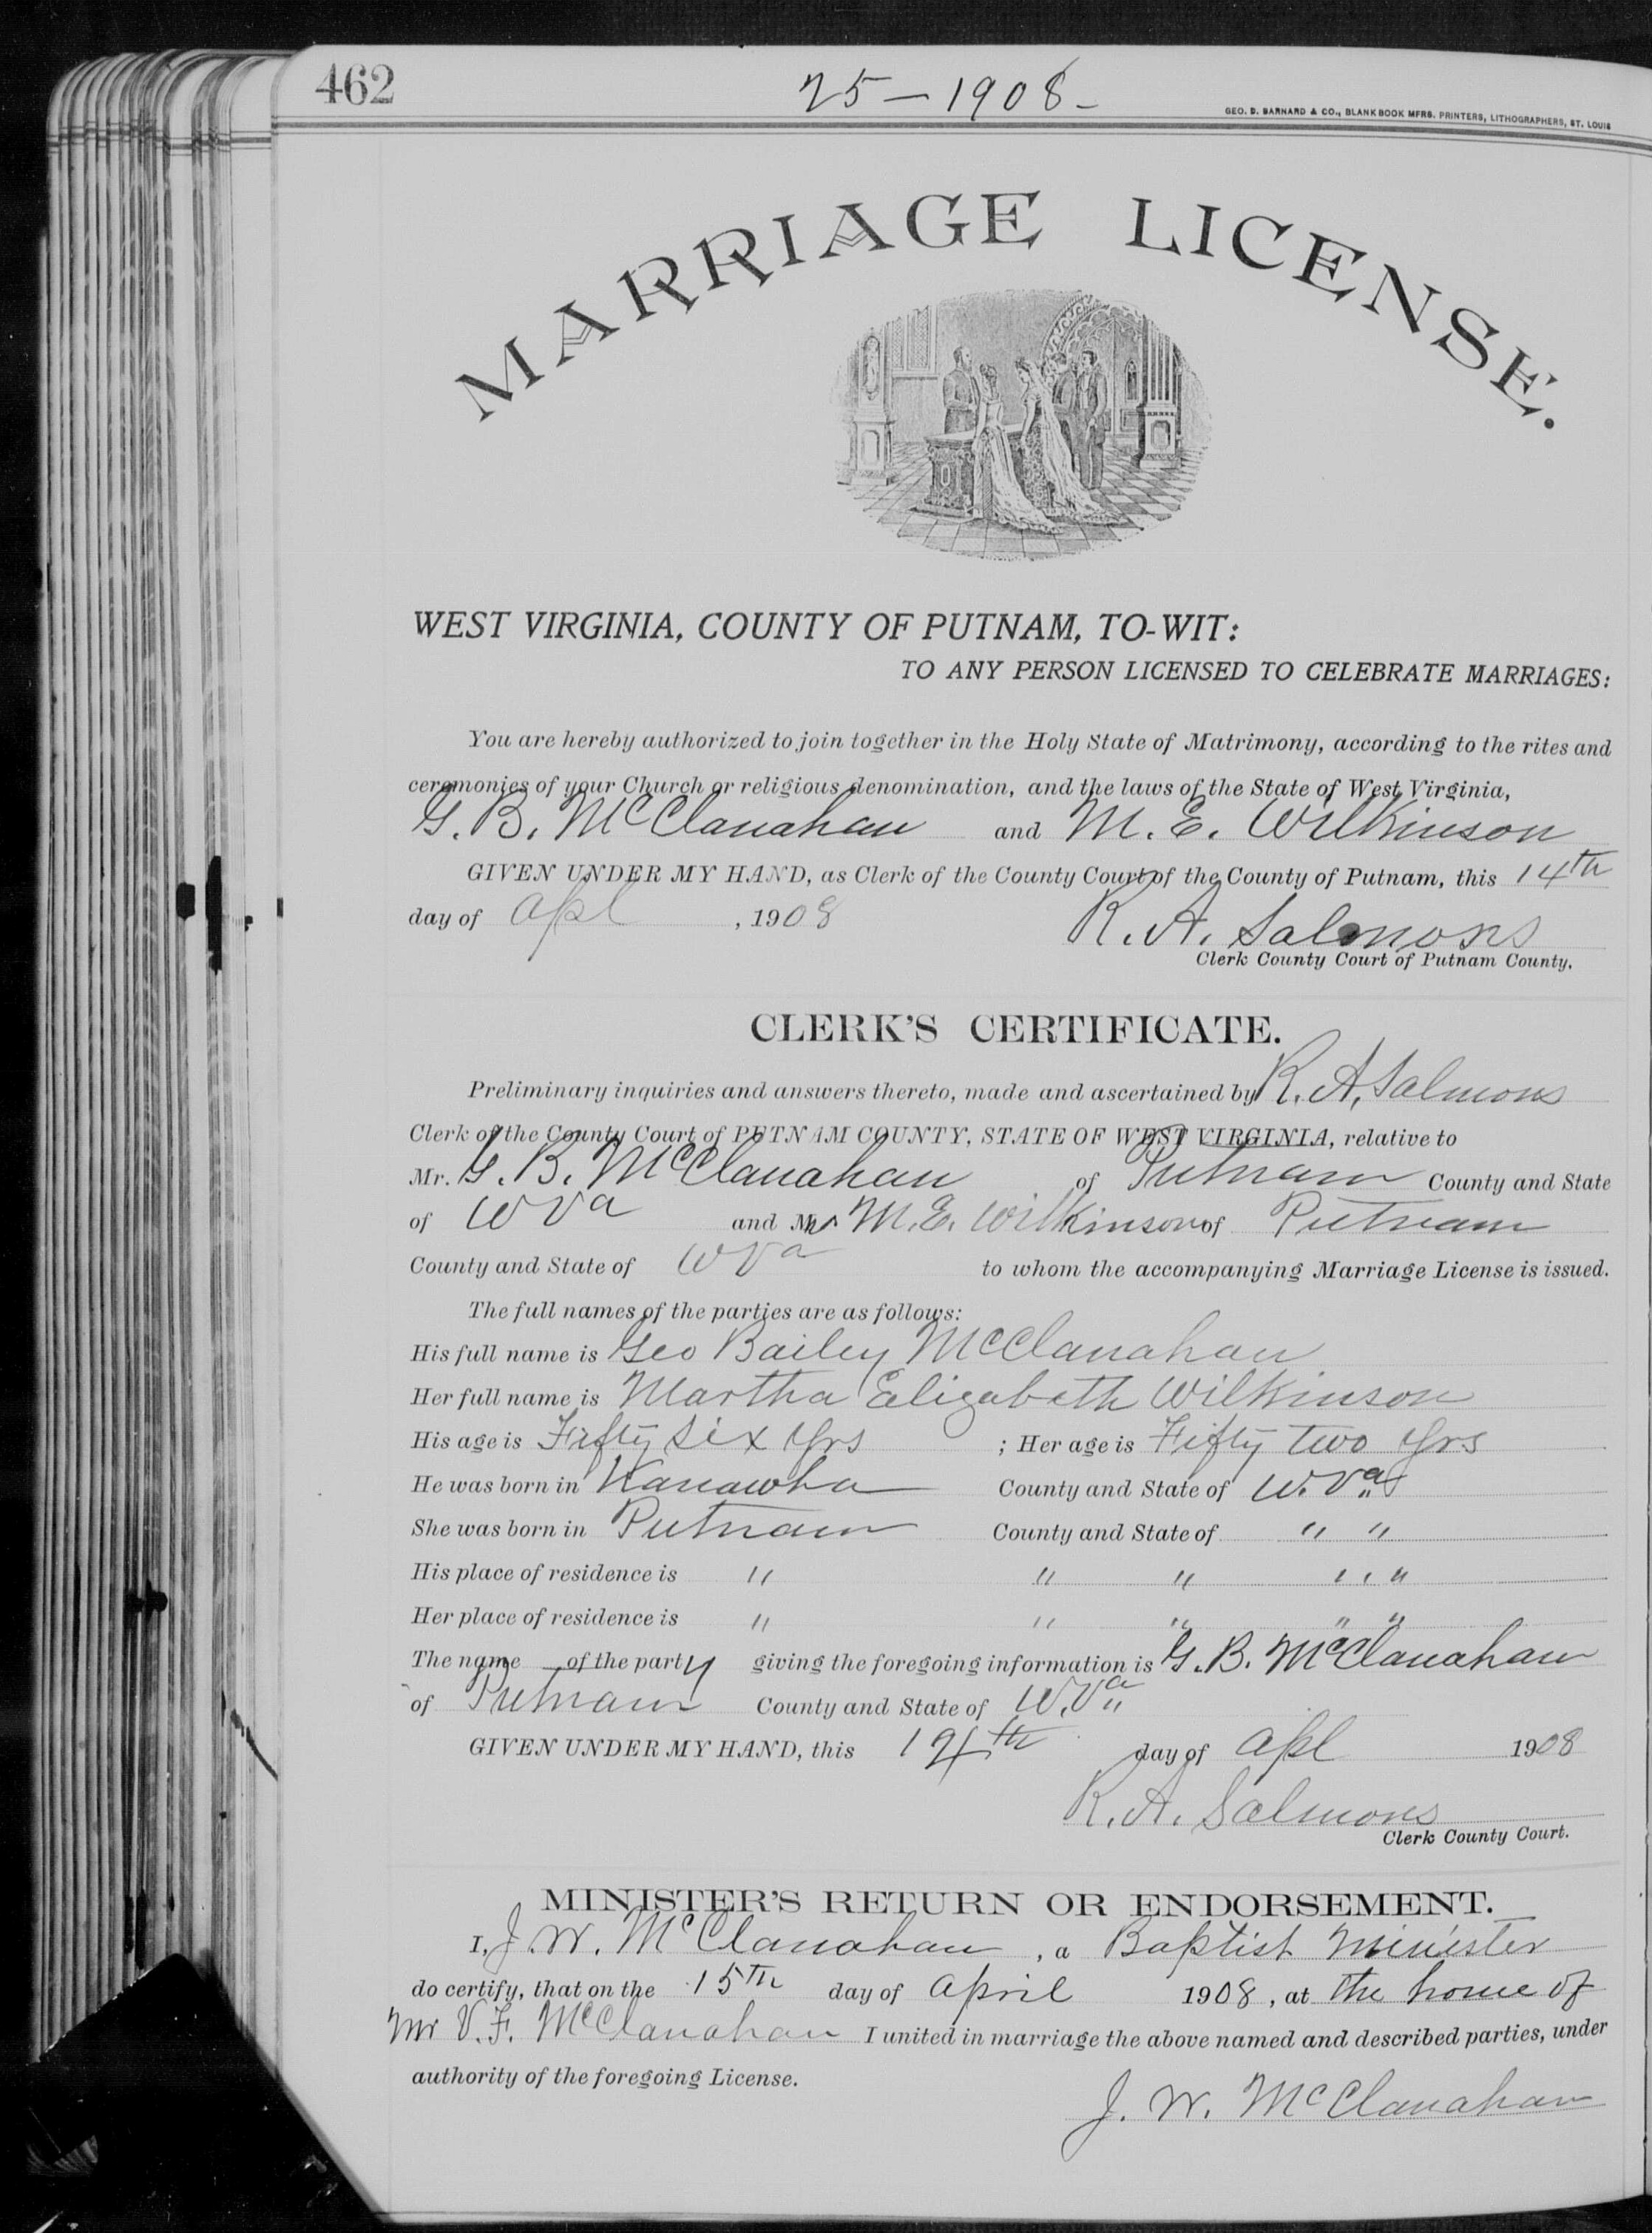 462
25 — 1908 –
GEO. D. BARNARD & CO., BLANK BOOK MFRS. PRINTERS, LITHOGRAPHERS, ST. LOUIS
MARRIAGE LICENSE.
WEST VIRGINIA, COUNTY OF PUTNAM, TO-WIT:
TO ANY PERSON LICENSED TO CELEBRATE MARRIAGES:
You are hereby authorized to join together in the Holy State of Matrimony, according to the rites and
ceremonies of your Church or religious denomination, and the laws of the State of West Virginia,
G. B. McClanahan and M. E. Wilkinson
GIVEN UNDER MY HAND, as Clerk of the County Court of the County of Putnam, this 14th
day of Apl , 1908 R. A. Salmons
Clerk County Court of Putnam County.
CLERK'S CERTIFICATE.
Preliminary inquiries and answers thereto, made and ascertained by R. A. Salmons
Clerk of the County Court of PUTNAM COUNTY, STATE OF WEST VIRGINIA, relative to
Mr. G. B. McClanahan of Putnam County and State
of W Va and Mrs M. E. Wilkinson of Putnam
County and State of W Va to whom the accompanying Marriage License is issued.
The full names of the parties are as follows:
His full name is Geo Bailey McClanahan
Her full name is Martha Elizabeth Wilkinson
His age is Fifty Six Yrs ; Her age is Fifty Two Yrs
He was born in Kanawha County and State of W. Va
She was born in Putnam County and State of " "
His place of residence is " " " " "
Her place of residence is " " " " "
The name of the party giving the foregoing information is G. B. McClanahan
of Putnam County and State of W. Va
GIVEN UNDER MY HAND, this 14th day of Apl 1908
R. A. Salmons
Clerk County Court.
MINISTER'S RETURN OR ENDORSEMENT.
I, J. W. McClanahan , a Baptist Minister
do certify, that on the 15th day of April 1908, at the home of
Mr V. F. McClanahan I united in marriage the above named and described parties, under
authority of the foregoing License.
J. W. McClanahan